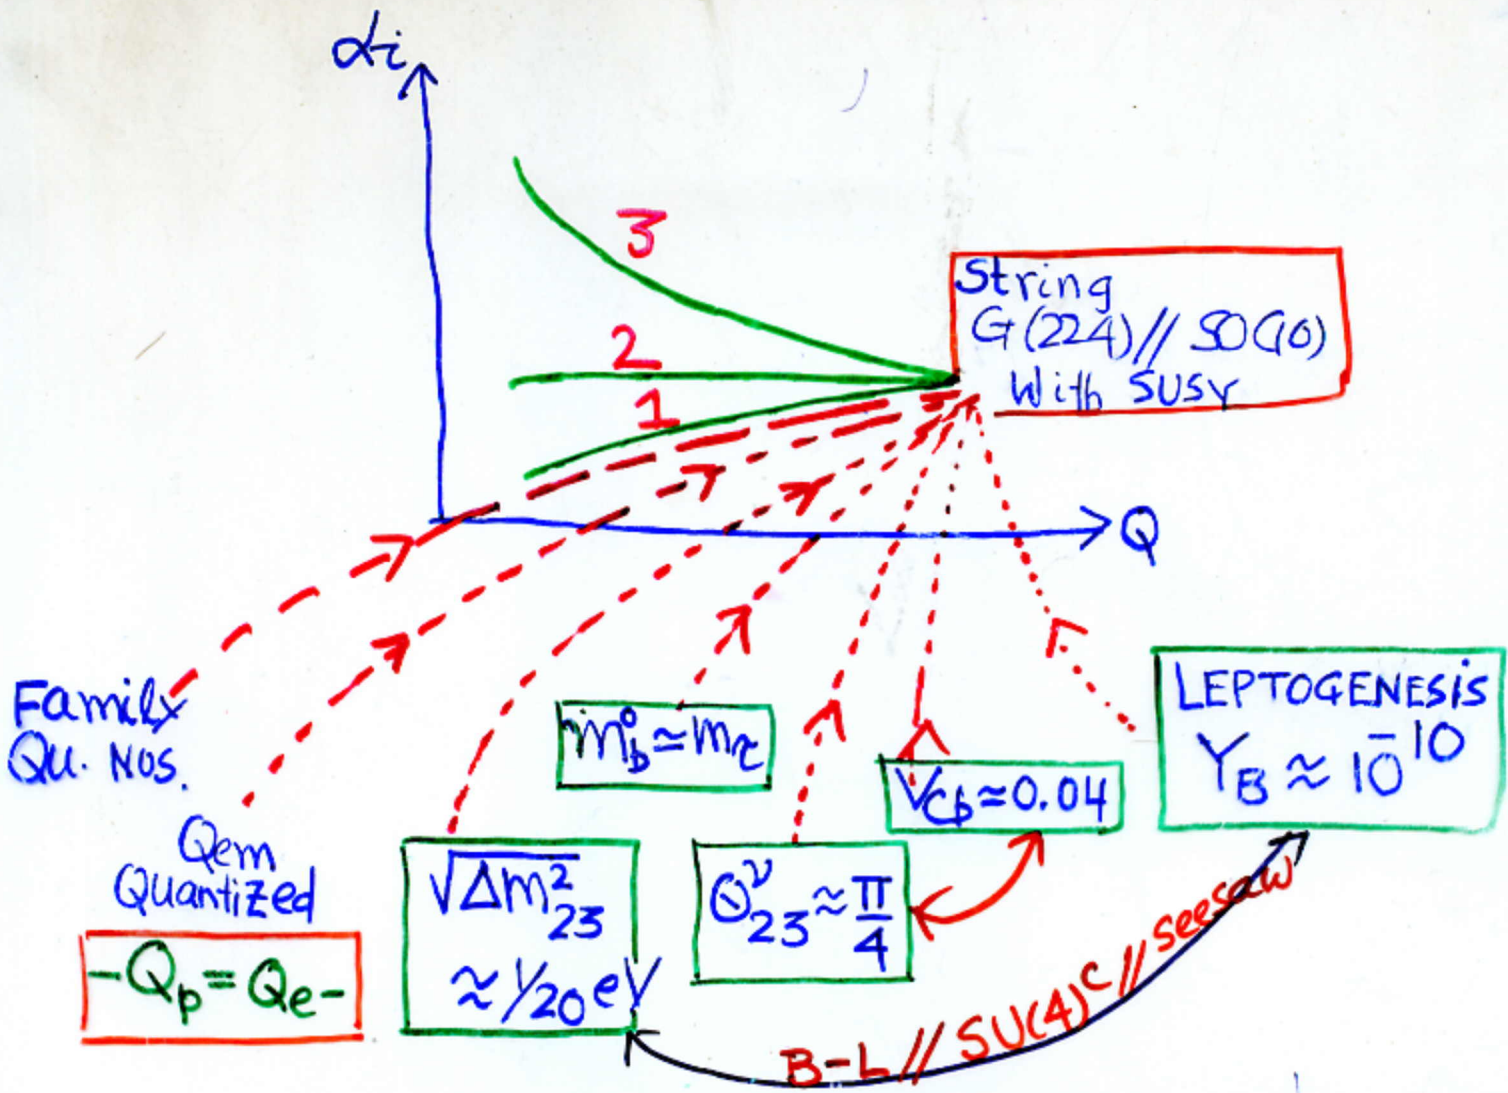 αi
3
2
1
String
G(224)//SO(10)
With SUSY
Q
Family
Qu. Nos.
Qem
Quantized
-Qp = Qe-
√Δm²₂₃
≈ 1/20 eV
m°b ≃ mτ
Θ^ν₂₃ ≈ π/4
Vcb ≃ 0.04
LEPTOGENESiS
Y_B ≈ 10^-10
B-L // SU(4)^c // seesaw